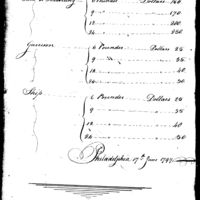 6 Pounder Dollars 160
9 " " 170
12 " 200
24 " 250
Garrison 6 Pounder Dollars 25
9 " " 35
12 " 40
24 " 50
Ship 6 Pounder Dollars 25
9 " 35
12 " 40
24 " 50
Philadelphia 17th June